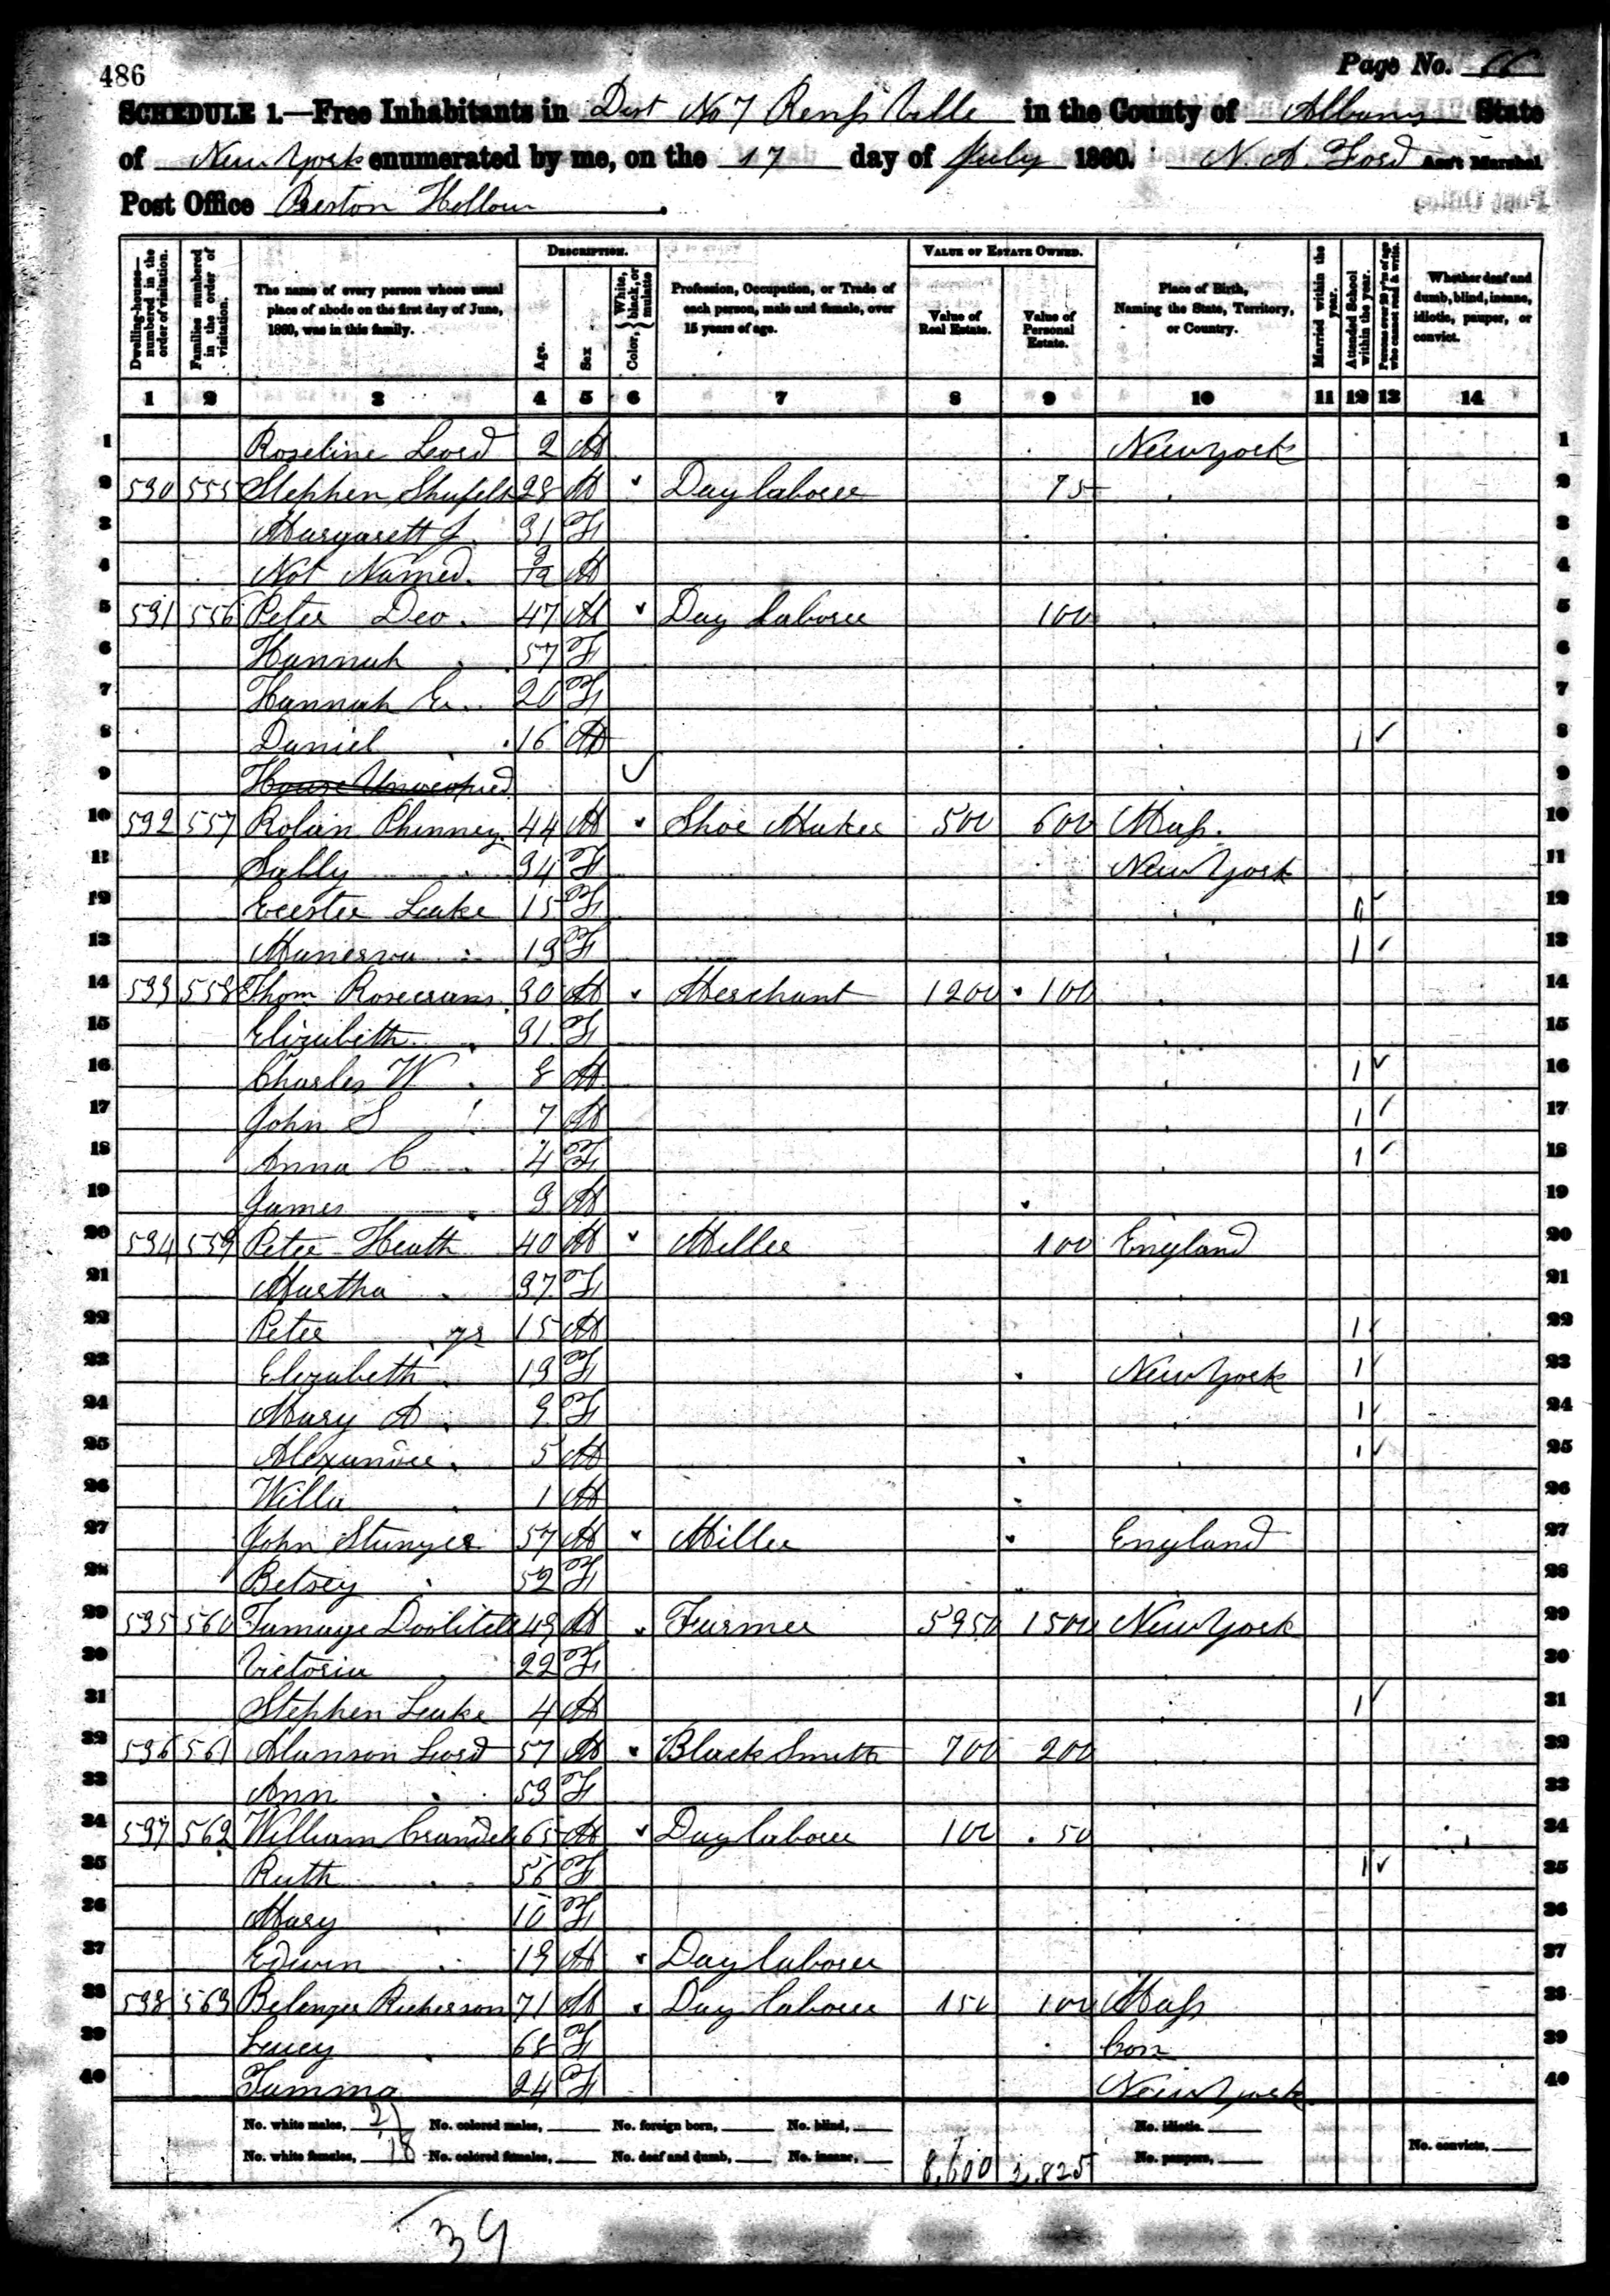 486
Page No. 66
SCHEDULE 1.—Free Inhabitants in Dist No 7 Renss Ville in the County of Albany State
of New York enumerated by me, on the 17 day of July 1860. N. A. Ford Ass't Marshal.
Post Office Preston Hollow.
DESCRIPTION. VALUE OF ESTATE OWNED.
Dwelling-houses— numbered in the order of visitation. Families numbered in the order of visitation. The name of every person whose usual place of abode on the first day of June, 1860, was in this family. Age. Sex Color, White, black, or mulatto Profession, Occupation, or Trade of each person, male and female, over 15 years of age. Value of Real Estate. Value of Personal Estate. Place of Birth, Naming the State, Territory, or Country. Married within the year. Attended School within the year. Persons over 20 y'rs of age who cannot read & write. Whether deaf and dumb, blind, insane, idiotic, pauper, or convict.
1 2 3 4 5 6 7 8 9 10 11 12 13 14
1 Roseline Lord 2 M New York 1
2 590 555 Stephen Shufelt 28 M Day laborer 75 2
3 Margarett J. 31 F 3
4 Not Named. M 4
5 591 556 Peter Deo. 47 M Day laborer 100 5
6 Hannah 57 F 6
7 Hannah E. 20 F 7
8 Daniel 16 M 1 8
9 House Unoccupied 9
10 592 557 Rolan Phinney 44 M Shoe Maker 500 600 Mass. 10
11 Sally 34 F New York 11
12 Leake 15 F 1 12
13 Manerva 13 F 1 13
14 593 558 Thom Rosecrans 30 M Merchant 1200 100 14
15 Elizabeth 31 F 15
16 Charles W 8 M 1 16
17 John S 7 M 1 17
18 Anna C 4 F 1 18
19 James 3 M 19
20 594 559 Peter Heath 40 M Miller 100 England 20
21 Martha 37 F 21
22 Peter Jr 15 M 1 22
23 Elizabeth 13 F New York 1 23
24 Mary A 9 F 1 24
25 Alexander 5 M 1 25
26 Willa 1 M 26
27 John 57 M Miller England 27
28 Betsey 52 F 28
29 595 560 Doolitell 49 M Farmer 5950 1500 New York 29
30 Victoria 22 F 30
31 Stephen Leake 4 M 1 31
32 596 561 Alanson Lord 57 M Black Smith 700 200 32
33 Ann 53 F 33
34 597 562 William Crandell 65 M Day laborer 100 50 34
35 Ruth 56 F 1 35
36 Mary 10 F 36
37 Edwin 19 M Day laborer 37
38 598 563 Richerson 71 M Day laborer 150 100 Mass 38
39 Lucy 68 F Con 39
40 24 F New York 40
No. white males, 21 No. colored males, No. foreign born, No. blind, No. idiotic.
No. white females, 18 No. colored females, No. deaf and dumb, No. insane, 8,600 2,825 No. paupers, No. convicts,
39